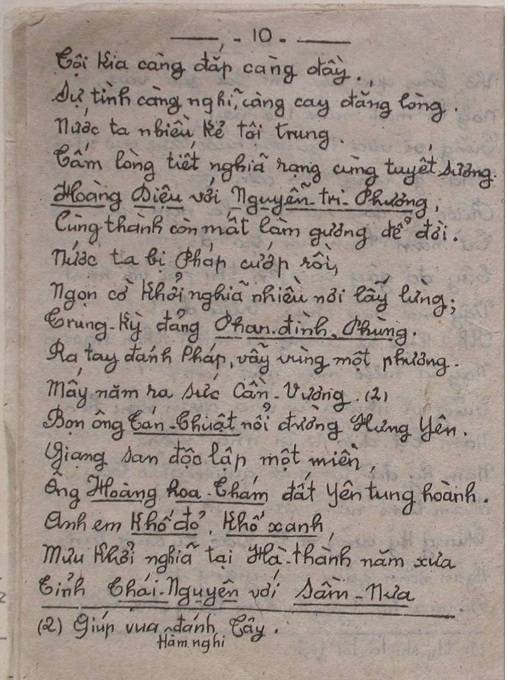 - 10 -
Tội kia càng đắp càng đầy,
Sự tình càng nghĩ, càng cay đắng lòng.
Nước ta nhiều kẻ tôi trung.
Tấm lòng tiết nghĩa rạng cùng tuyết sương.
Hoàng Diệu với Nguyễn-tri-Phương,
Cùng thành còn mất làm gương để đời.
Nước ta bị Pháp cướp rồi,
Ngọn cờ khởi nghĩa nhiều nơi lẫy lừng;
Trung-Kỳ đảng Phan-đình-Phùng.
Ra tay đánh Pháp, vẫy vùng một phương.
Mấy năm ra sức Cần-Vương. (2)
Bọn ông Tán-Thuật nổi đường Hưng Yên.
Giang san độc lập một miền,
Ông Hoàng hoa-Thám đất Yên tung hoành.
Anh em Khố đỏ, Khố xanh,
Mưu khởi nghĩa tại Hà-thành năm xưa
Tỉnh Thái-Nguyên với Sầm-Nưa
(2) Giúp vua Hàm nghi đánh Tây.